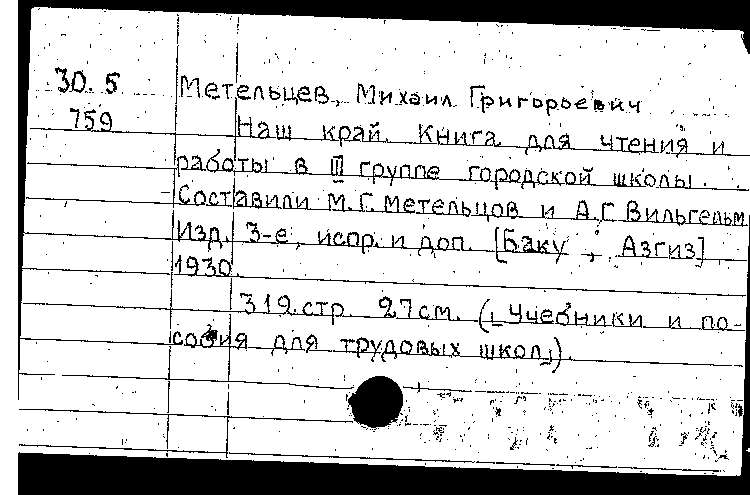 30.5
759
Метельцев, Михаил Григорьевич
Наш край. Книга для чтения и
работы в III группе городской школы.
Составили М.Г. Метельцов и А.Г. Вильгельм.
Изд. 3-е, испр. и доп. [Баку, Азгиз]
1930.
319 стр. 27 см. („Учебники и по-
собия для трудовых школ„).